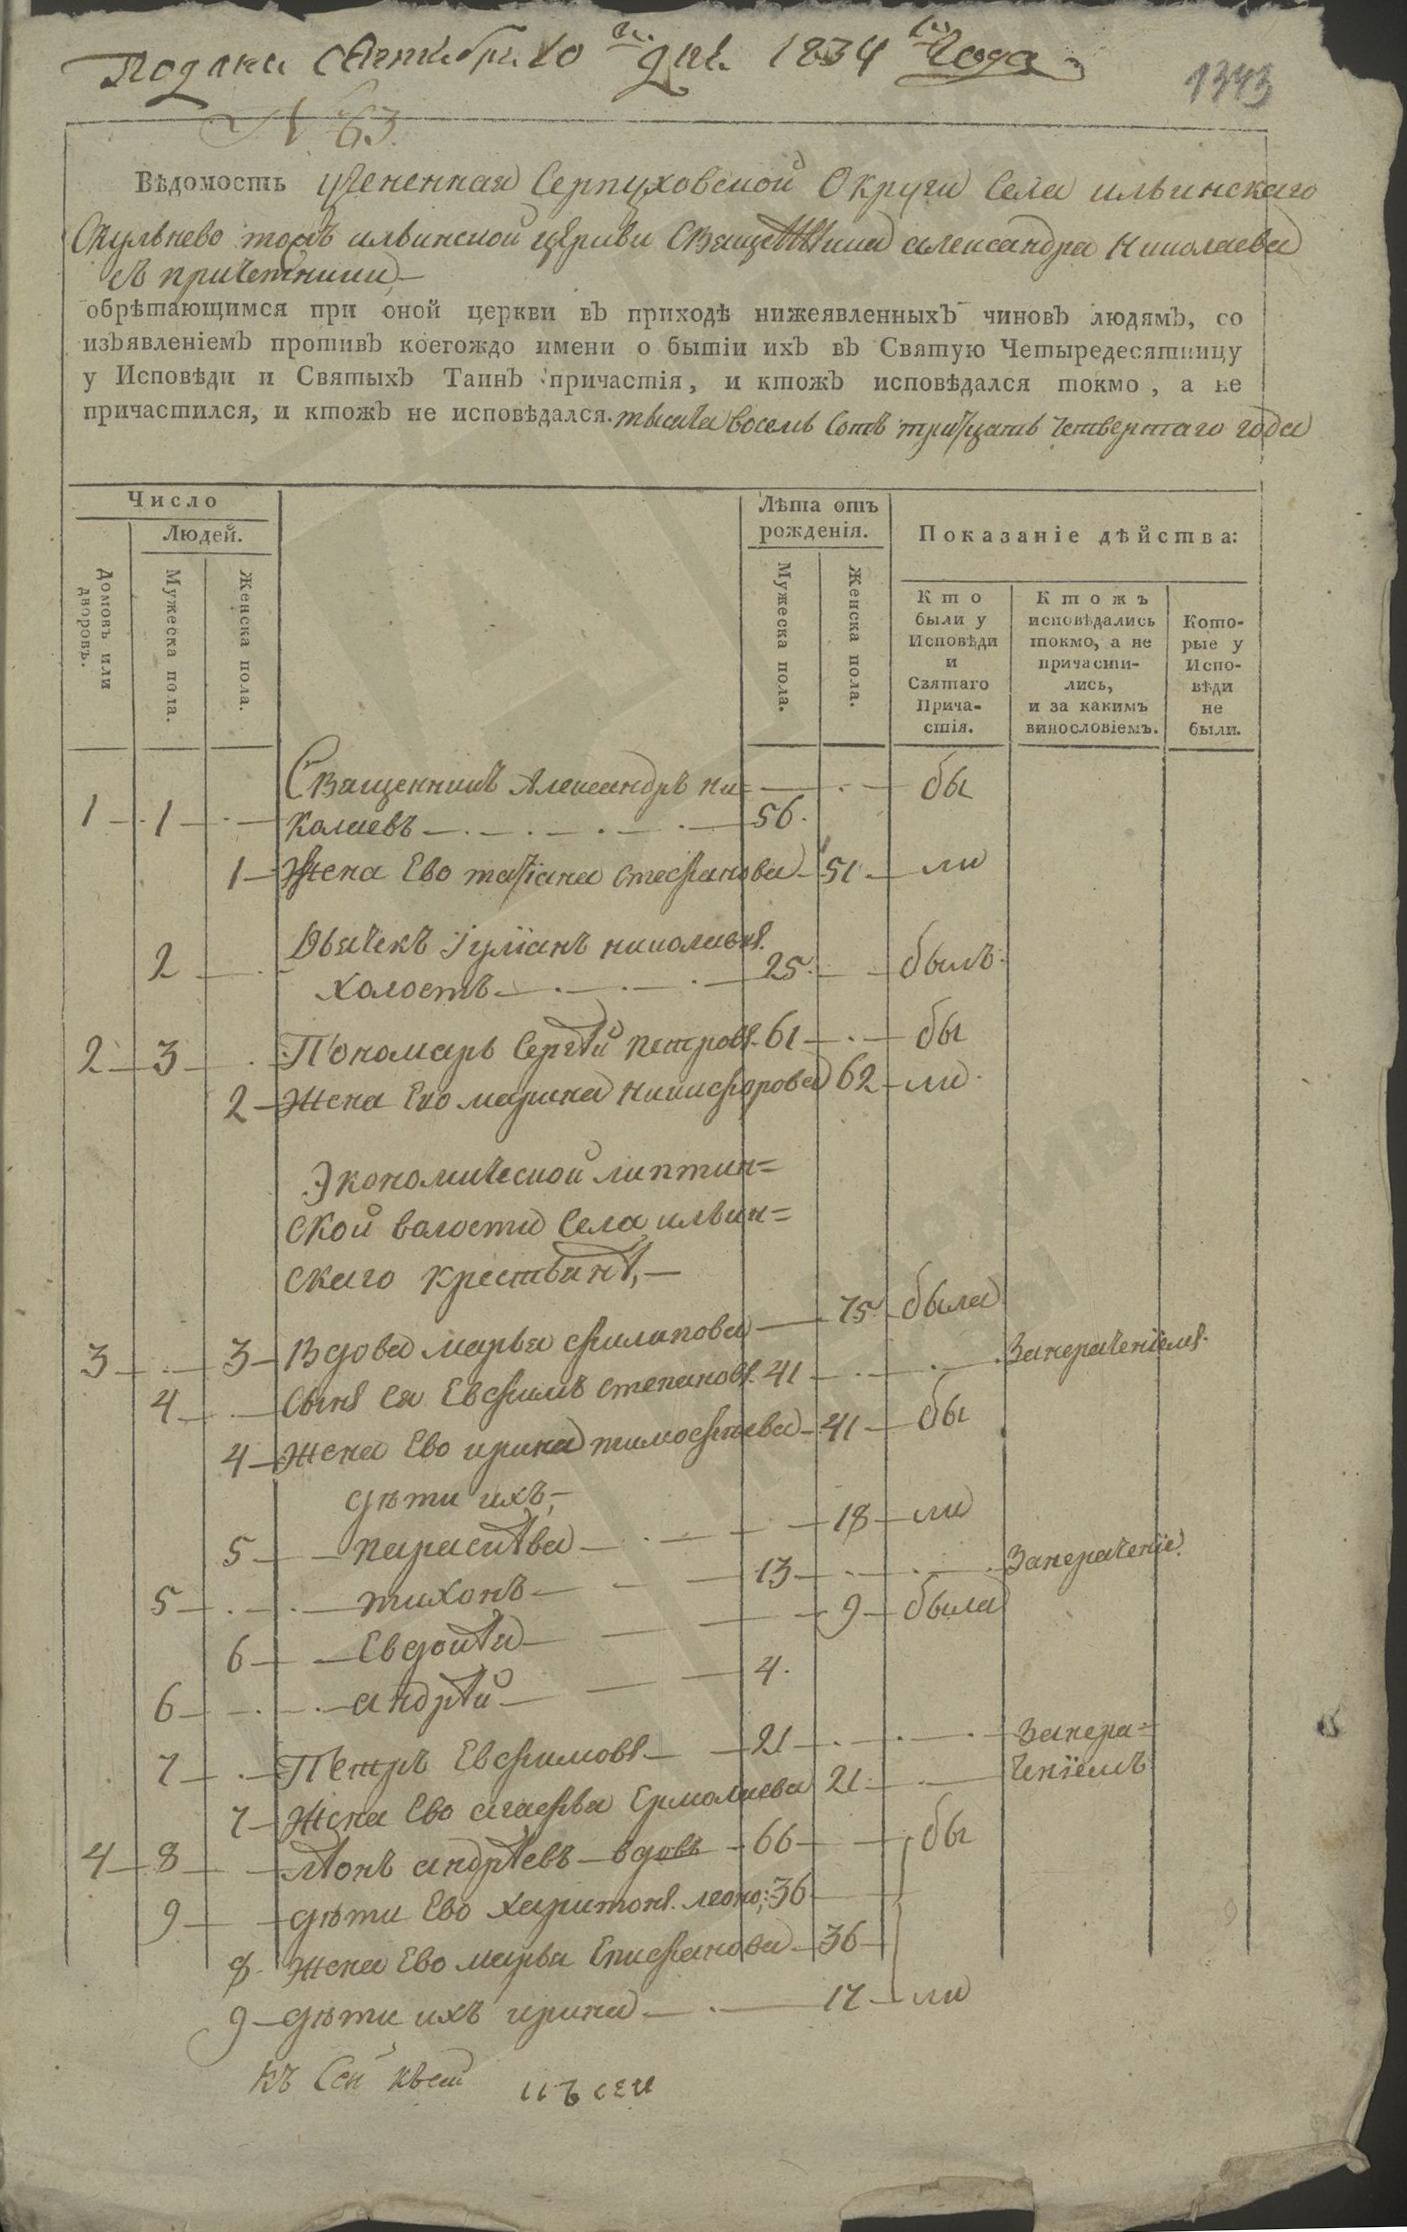 Подана Сентября 10 го дня 1834 го Года
1343
№ 63.
Вѣдомость учененная Серпуховской Округи Села ильинскаго
Скульнево тожъ ильинской церкви Священника александра николаева
съ причетники
обрѣтающимся при оной церкви въ приходѣ нижеявленныхъ чиновъ людямъ, со
изъявленіемъ противъ коегождо имени о бытіи ихъ въ Святую Четыредесятницу
у Исповѣди и Святыхъ Таинъ причастія, и ктожъ исповѣдался токмо, а не
причастился, и ктожъ не исповѣдался. тысяча восемь сотъ тритцать четвертаго года
Число
Людей.
Домовъ или дворовъ.
Мужеска пола.
Женска пола.
Лѣта отъ
рожденія.
Мужеска пола.
Женска пола.
Показаніе дѣйства:
Кто
были у
Исповѣди
и
Святаго
Прича-
стія.
Ктожъ
исповѣдались
токмо, а не
причасти-
лись,
и за какимъ
винословіемъ.
Кото-
рые у
Испо-
вѣди
не
были.
Священникъ Александръ ни= бы
1 1 колаевъ 56.
1 Жена Ево татіана стефанова 51 ли
Дьячекъ Іуліанъ николаевъ
2 холостъ 25 былъ
2 3 Пономарь Сергѣй петровъ 61 бы
2 Жена Ево марина никифорова 62 ли
Экономической липтин=
ской волости Села ильин=
скаго крестьянѣ,
3 3 Вдова марья филипова 75 была
4 Сынъ Ея Евфимъ степановъ 41 Занерачениемъ
4 Жена Ево ирина тимофеева 41 бы
дѣти ихъ,
5 параскѣва 18 ли
5 тихонъ 13 Занераченіе.
6 Евдокѣя 9 была
6 андрѣй 4.
7 Петръ Евфимовъ 21 Занера=
7 Жена Ево агафья Ермолаева 21 ченіемъ
4 8 лѣонъ андрѣевъ вдовъ 66 бы
9 дѣти Ево харитонъ леоно: 36
8 Жена Ево марья Епифанова 36
9 дѣти ихъ ирина 17 ли
къ Сей